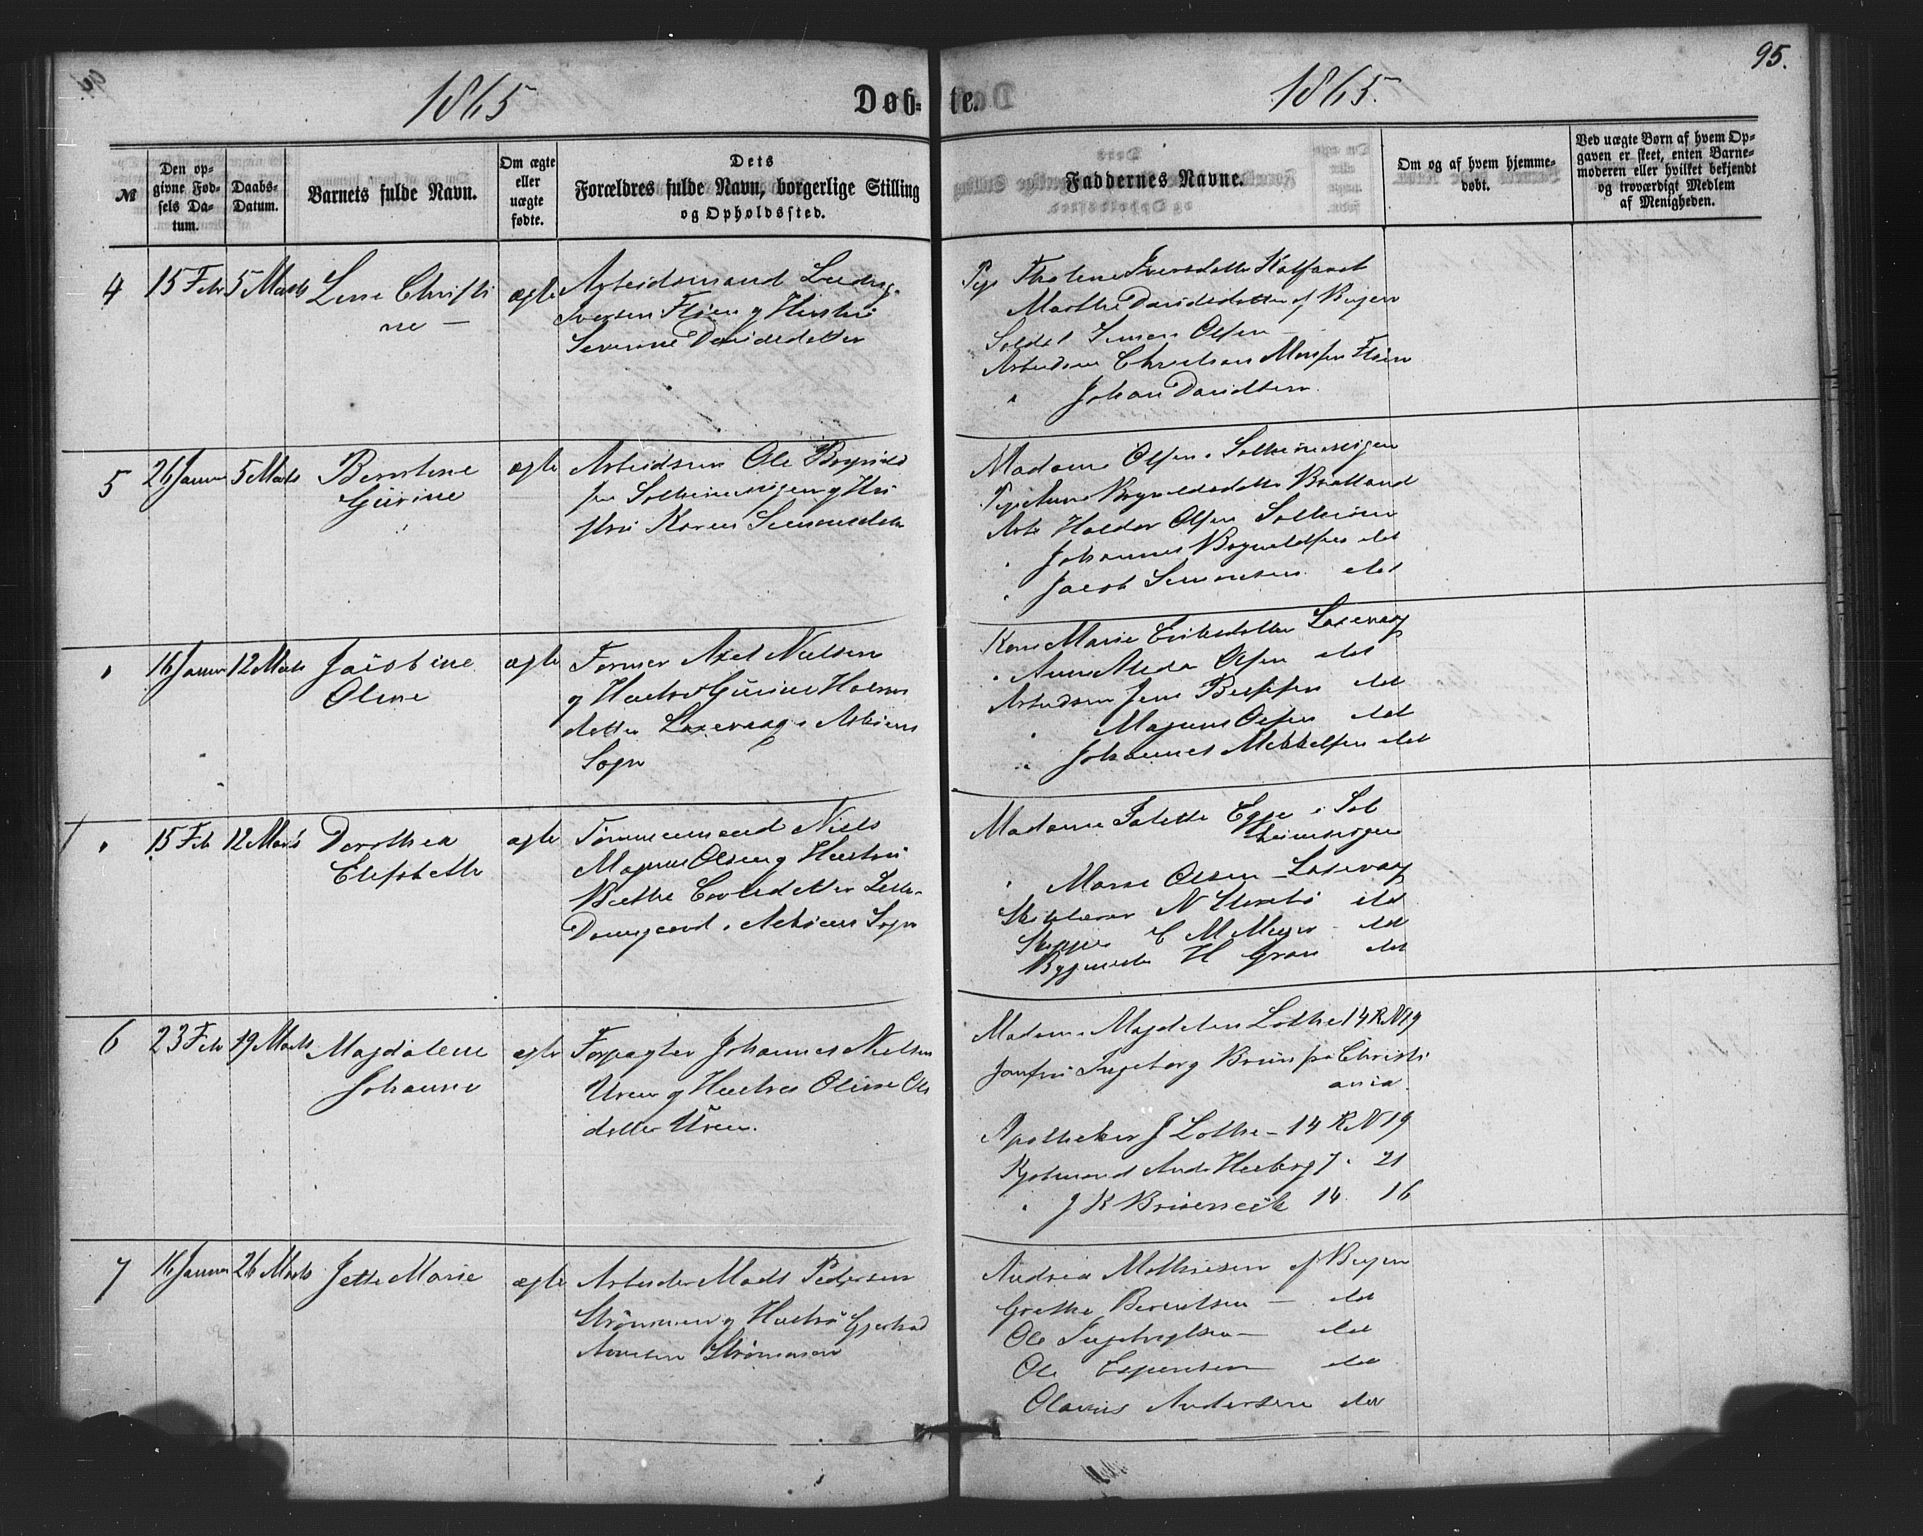 1865
Døb-te.
1865.
95.
№
Den op-
givne Fød-
sels Da-
tum.
Daabs-
Datum.
Barnets fulde Navn.
Om ægte
eller
uægte
fødte.
Dets
Forældres fulde Navn, borgerlige Stilling
og Opholdssted.
Faddernes Navne.
Om og af hvem hjemme-
døbt.
Ved uægte Børn af hvem Op-
gaven er skeet, enten Barne-
moderen eller hvilket bekjendt
og troværdigt Medlem
af Menigheden.
4 15 Feb 5 Marts Lene Christi
ne —
ægte Arbeidsmand Ludvig
Iversen Fløen og Hustru
Severine Davidsdatter
Pige Iversdatter Kalfaret
Marthe Davidsdatter af Bergen
Soldat Simon Olsen —
Arbeidsm Christian Monsen Fløen
" Johan Davidsen
5 26 Januar 5 Marts Berntine
Gurine
ægte Arbeidsm Ole Brynild
sen Solheimsvigen og Hu
stru Karen Simonsdatter
Madame Olsen Solheimsvigen
Pige Anne Brynildsdatter Bratland
Arb Haldor Olsen Solheim
" Johannes Brynildsen det
" Jacob Simonsen det
" 16 Januar 12 Marts Jacobine
Oline
ægte Former Axel Nielsen
og Hustru Gurine
datter Laxevaag i Askøens
Sogn
Kone Marie Eriksdatter Laxevaag
" Anne Olsen det
Arbeidsm Jens det
" Magnus Olsen det
" Johannes Mikkelsen det
" 15 Feb 12 Marts Dorothea
Elisabeth
ægte Tømmermand Niels
Magnus Olsen og Hustru
Damsgaard i Askøens Sogn
Madame Egge i Sol
heimsvigen
" Marie Olsen Laxevaag
N det
Skipper C M Meyer det
Bygmester H Gran det
6 23 Feb 19 Marts Magdalene
Johanne
ægte Forpagter Johannes Nielsen
Uren og Hustru Oline Ols
datter Uren.
Madame Magdalene Lothe 14 R N 19
Jomfru Ingeborg Bruun fra Christi
ania
Apotheker J Lothe — 14 R N 19
Kjøbmand And. 7 " 21
" J K 14 16
7 16 Januar 26 Marts Jette Marie
ægte Arbeider Mads Pedersen
Strømmen og Hustru Gjertrud
Strømmen
Andrea Mathiesen af Bergen
Grethe Berentsen — det
Ole Ingebrigtsen — det
Ole Espensen det
Olavus Andersen det